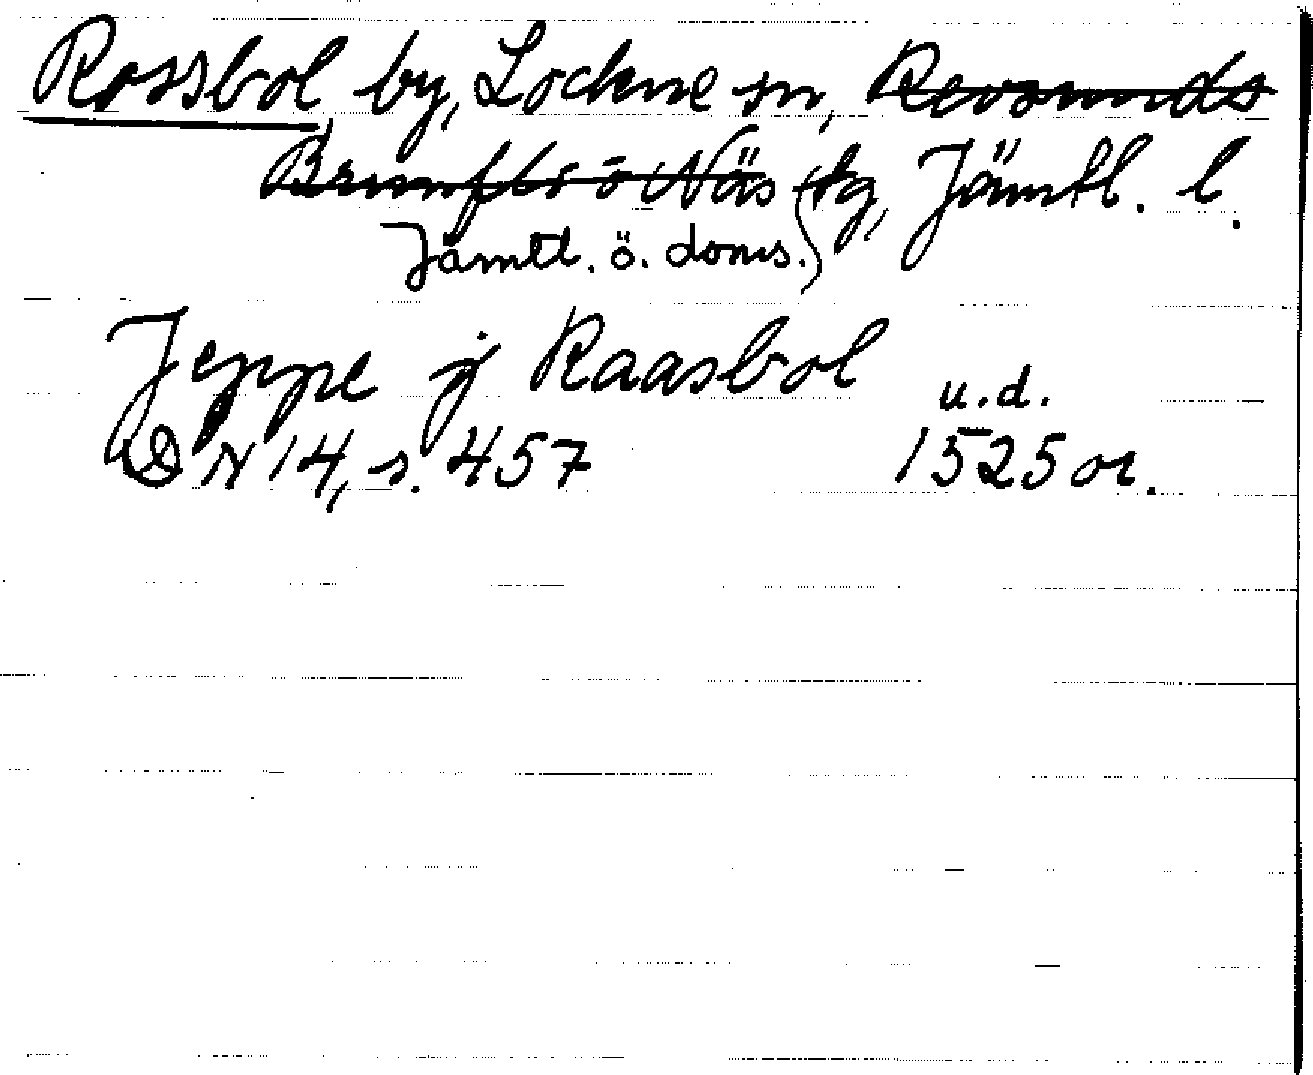 Rossbol by, Lockne sn, Revsunds
Brunflo o Näs tg, Jämtl. l.
Jämtl. ö. doms.
Jeppe j Raasbol u.d.
DN 14, s. 457 1525 or.